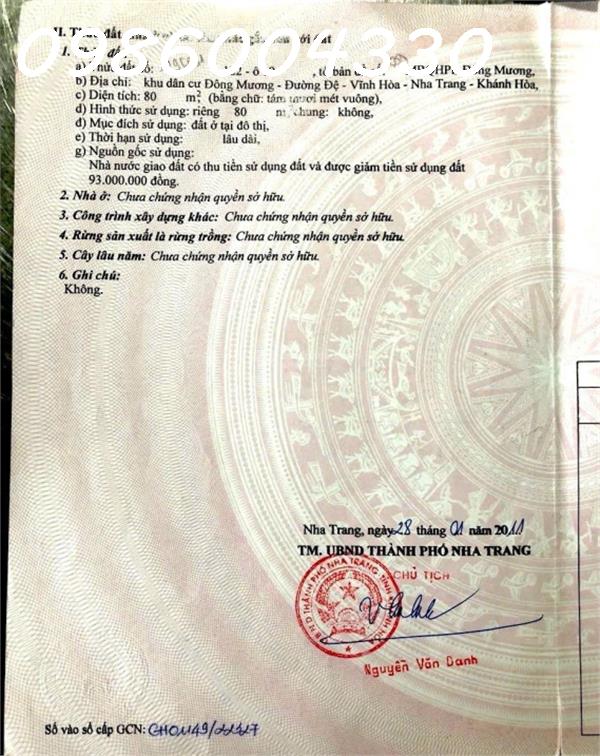 0986004330
II. Thửa đất
1. Thửa đất
a) Thửa đất số: , tờ bản đồ Đông Mương,
b) Địa chỉ: khu dân cư Đông Mương - Đường Đệ - Vĩnh Hòa - Nha Trang - Khánh Hòa,
c) Diện tích: 80 m², (bằng chữ: tám mươi mét vuông),
d) Hình thức sử dụng: riêng 80 m², chung: không,
đ) Mục đích sử dụng: đất ở tại đô thị,
e) Thời hạn sử dụng: lâu dài,
g) Nguồn gốc sử dụng:
Nhà nước giao đất có thu tiền sử dụng đất và được giảm tiền sử dụng đất
93.000.000 đồng.
2. Nhà ở: Chưa chứng nhận quyền sở hữu.
3. Công trình xây dựng khác: Chưa chứng nhận quyền sở hữu.
4. Rừng sản xuất là rừng trồng: Chưa chứng nhận quyền sở hữu.
5. Cây lâu năm: Chưa chứng nhận quyền sở hữu.
6. Ghi chú:
Không.
Nha Trang, ngày 28 tháng 01 năm 2011
TM. UBND THÀNH PHỐ NHA TRANG
CHỦ TỊCH
U.B.N.D THÀNH PHỐ NHA TRANG TỈNH KHÁNH HÒA
Nguyễn Văn Danh
Số vào sổ cấp GCN: CH01149/22327